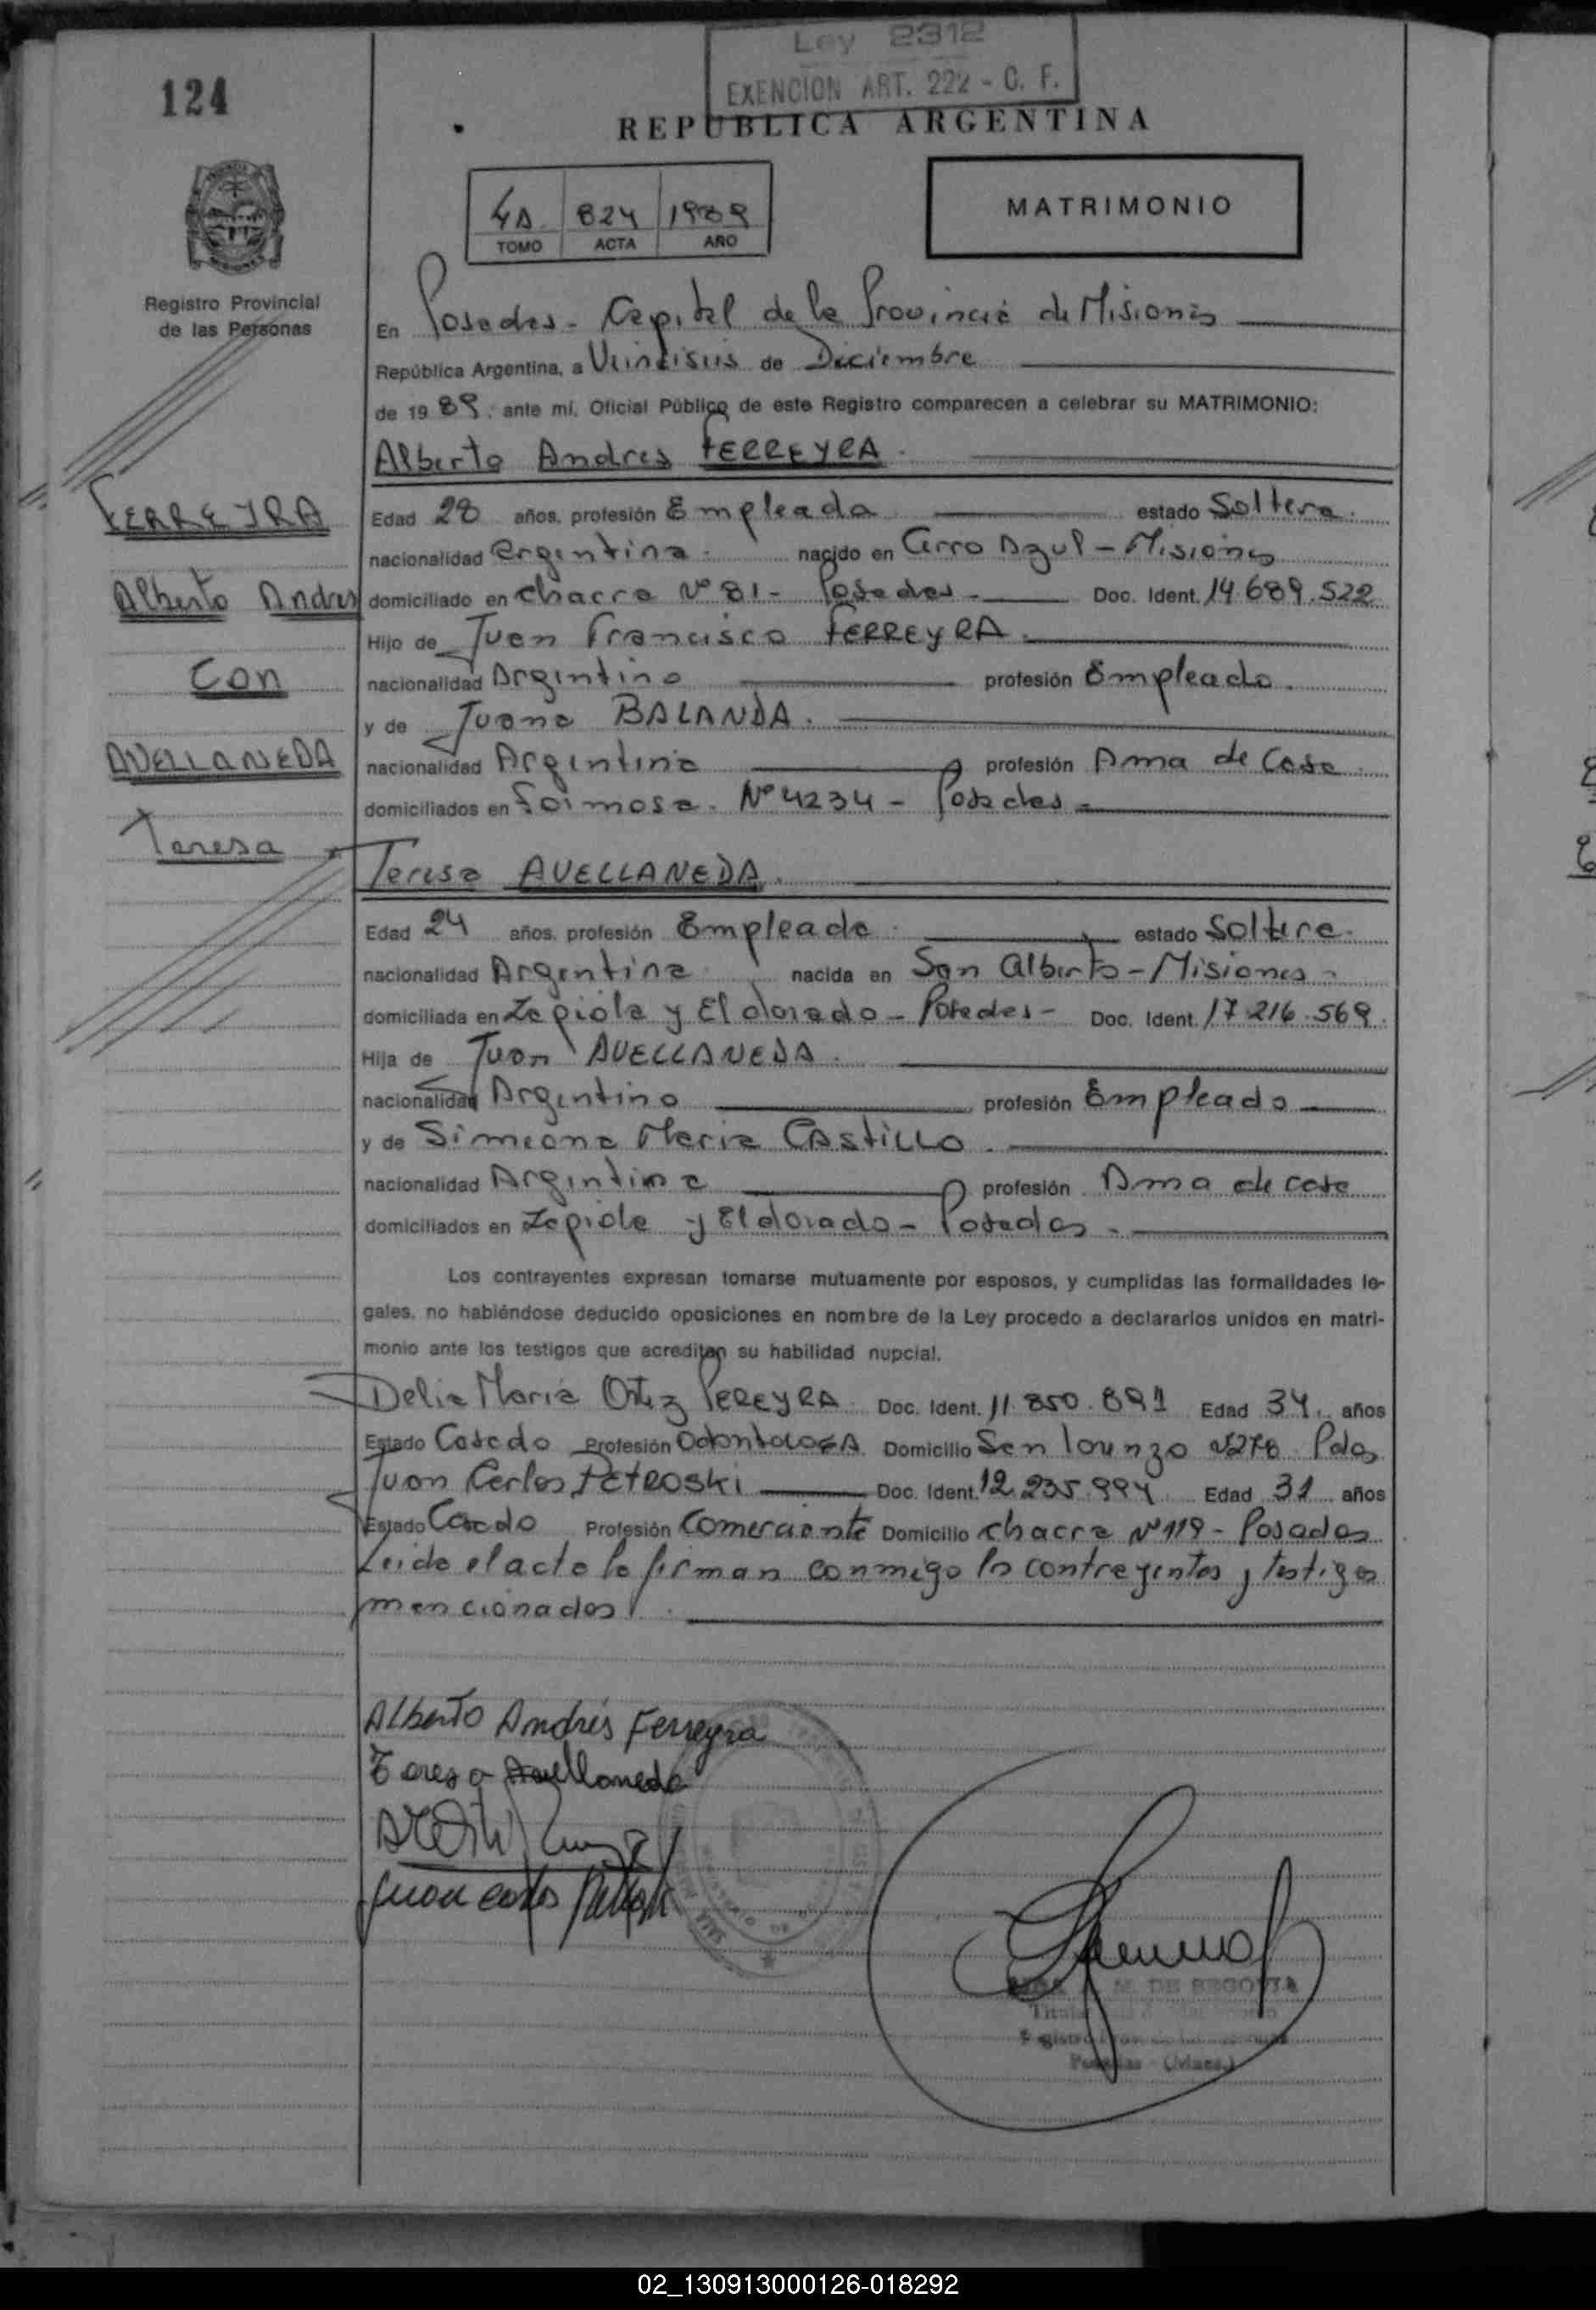 Ley 2312
EXENCION ART. 222 - C. F.
124
REPUBLICA ARGENTINA
4A 824 1989
TOMO ACTA AÑO
MATRIMONIO
Registro Provincial
de las Personas
En Posadas - Capital de la Provincia de Misiones
República Argentina, a Veintiseis de Diciembre
de 19 89, ante mí, Oficial Público de este Registro comparecen a celebrar su MATRIMONIO:
Alberto Andres FERREYRA.
FERREYRA
Alberto Andres
Con
AVELLANEDA
Teresa
Edad 28 años, profesión Empleado estado Soltero.
nacionalidad Argentina. nacido en Cerro Azul - Misiones
domiciliado en Chacra Nº 81 - Posadas - Doc. Ident. 14.689.522
Hijo de Juan Francisco FERREYRA.
nacionalidad Argentino profesión Empleado.
y de Juana BALANDA.
nacionalidad Argentina profesión Ama de Casa.
domiciliados en Formosa. Nº 4234 - Posadas -
Teresa AVELLANEDA.
Edad 24 años, profesión Empleada. estado Soltera.
nacionalidad Argentina nacida en San Alberto - Misiones -
domiciliada en Zapiola y Eldorado - Posadas - Doc. Ident. 17.216.569.
Hija de Juan AVELLANEDA.
nacionalidad Argentino profesión Empleado
y de Simeona Maria CASTILLO.
nacionalidad Argentina profesión Ama de casa
domiciliados en Zapiola y Eldorado - Posadas -
Los contrayentes expresan tomarse mutuamente por esposos, y cumplidas las formalidades le-
gales, no habiéndose deducido oposiciones en nombre de la Ley procedo a declararlos unidos en matri-
monio ante los testigos que acreditan su habilidad nupcial.
Delia Maria Ortiz PEREYRA. Doc. Ident. 11.850.891 Edad 34. años
Estado Casado Profesión Odontologa Domicilio San Lorenzo Pdas
Juan Carlos PETROSKI Doc. Ident. 12.235.994 Edad 31 años
Estado Casado Profesión Comerciante Domicilio Chacra Nº 119 - Posadas
Leido el acto lo firman conmigo los contrayentes y testigos
mencionados.
Alberto Andrés Ferreyra
Teresa Avellaneda
Juan Carlos Petroski
M. DE SEGOVIA
Titular
Posadas - (Mnes.)
02_130913000126-018292